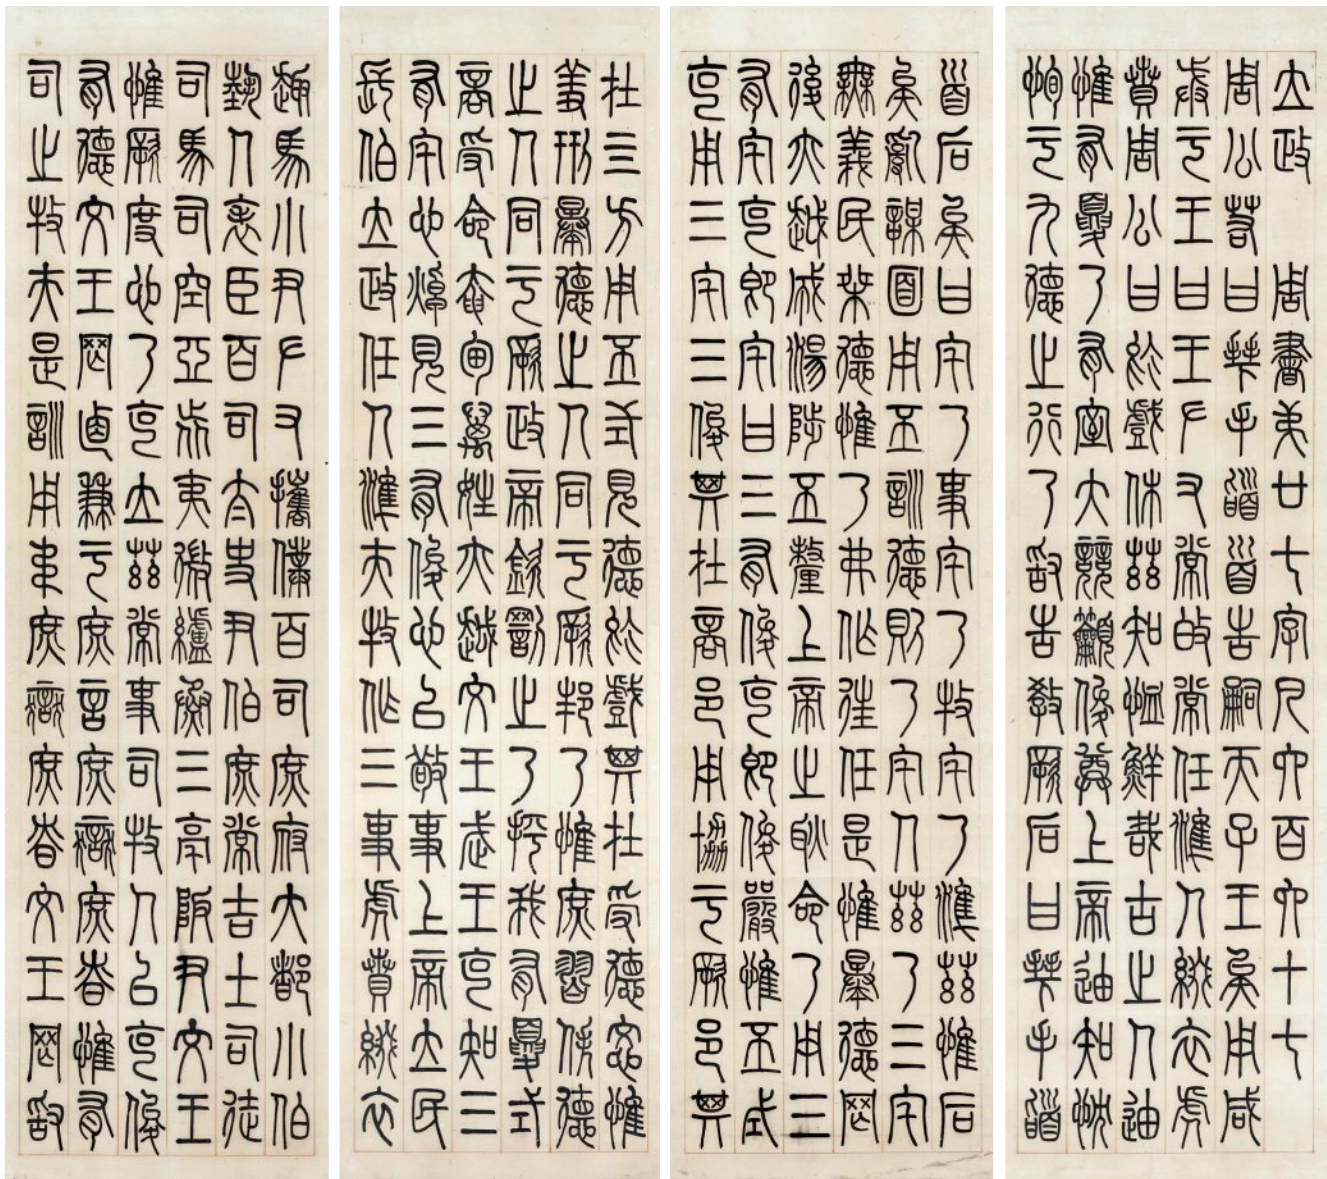 立政　周書弟廿七字凡六百六十七
周公若曰拜手䭫首告嗣天子王矣用咸
戒于王曰王左右常伯常任準人綴衣虎
賁周公曰於戲休茲知恤鮮哉古之人迪
惟有夏乃有室大競籲俊尊上帝迪知忱
恂于九德之行乃敢告教厥后曰拜手䭫
首后矣曰宅乃事宅乃牧宅乃準茲惟后
矣亂謀面用丕訓德則乃宅人茲乃三宅
無義民桀德惟乃弗作往任是惟暴德罔
後亦越成湯陟丕釐上帝之耿命乃用三
有宅克即宅曰三有俊克即俊嚴惟丕式
克用三宅三俊其在商邑用協于厥邑其
在四方用丕式見德於戲其在受德忞惟
羞刑暴德之人同于厥邦乃惟庶習佚德
之人同于厥政帝欽罰之乃抨我有夏式
商受命奄甸萬姓亦越文王武王克知三
有宅心焯見三有俊心以敬事上帝立民
長伯立政任人準夫牧作三事虎賁綴衣
趣馬小尹左右攜僕百司庶府大都小伯
藝人表臣百司太史尹伯庶常吉士司徒
司馬司空亞旅夷微纑烝三亳阪尹文王
惟厥度心乃克立茲常事司牧人以克俊
有德文王罔攸兼于庶言庶獄庶慎惟有
司之牧夫是訓用違庶獄庶慎文王罔敢